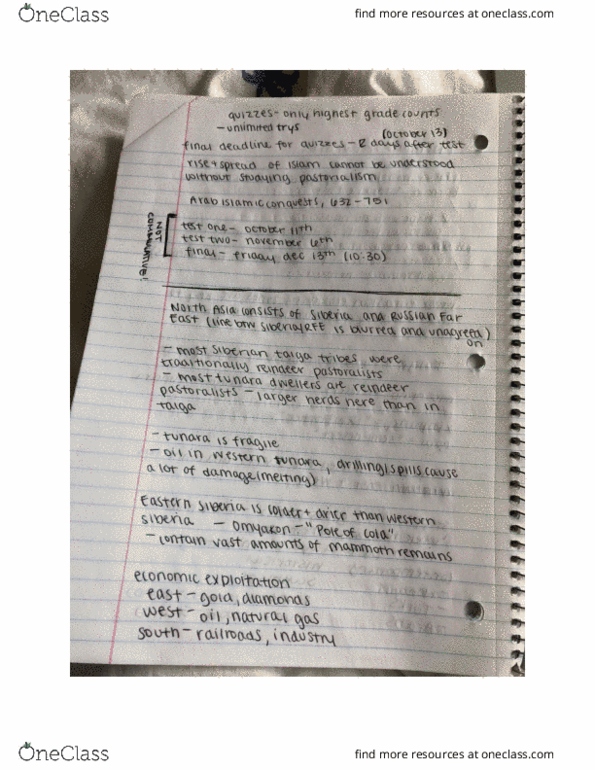 OneClass
find more resources at oneclass.com
quizzes - only highest grade counts
- unlimited trys
(October 13)
final deadline for quizzes - 2 days after test
rise + spread of islam cannot be understood
without studying pastoralism
Arab islamic conquests, 632 - 751
NOT CUMULATIVE!
test one - october 11th
test two - november
final - friday dec 13th (10:30)
North Asia consists of Siberia and Russian Far
East (line btw siberia/RFE is blurred and unagreed
on)
- most Siberian taiga tribes were
traditionally reindeer pastoralists
- most tundra dwellers are reindeer
pastoralists - larger herds here than in
taiga
- tundra is fragile
- oil in western tundra, drilling/spills cause
a lot of damage (melting)
Eastern Siberia is colder + drier than western
siberia - Omyakon - "Pole of Cold"
- contain vast amounts of mammoth remains
economic exploitation
east - gold, diamonds
west - oil, natural gas
south - railroads, industry
OneClass
find more resources at oneclass.com